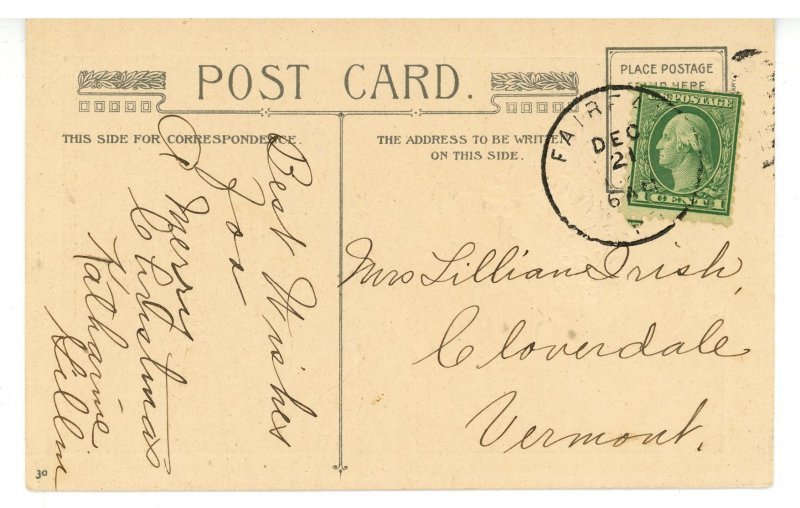 POST CARD.
PLACE POSTAGE
HERE
THIS SIDE FOR CORRESPONDENCE.
THE ADDRESS TO BE WRITTEN
ON THIS SIDE.
DEC
21
6 AM
POSTAGE
1 CENTS 1
Best Wishes
for
A Merry
Christmas
Katharine
Mrs Lillian Irish,
Cloverdale
Vermont.
30